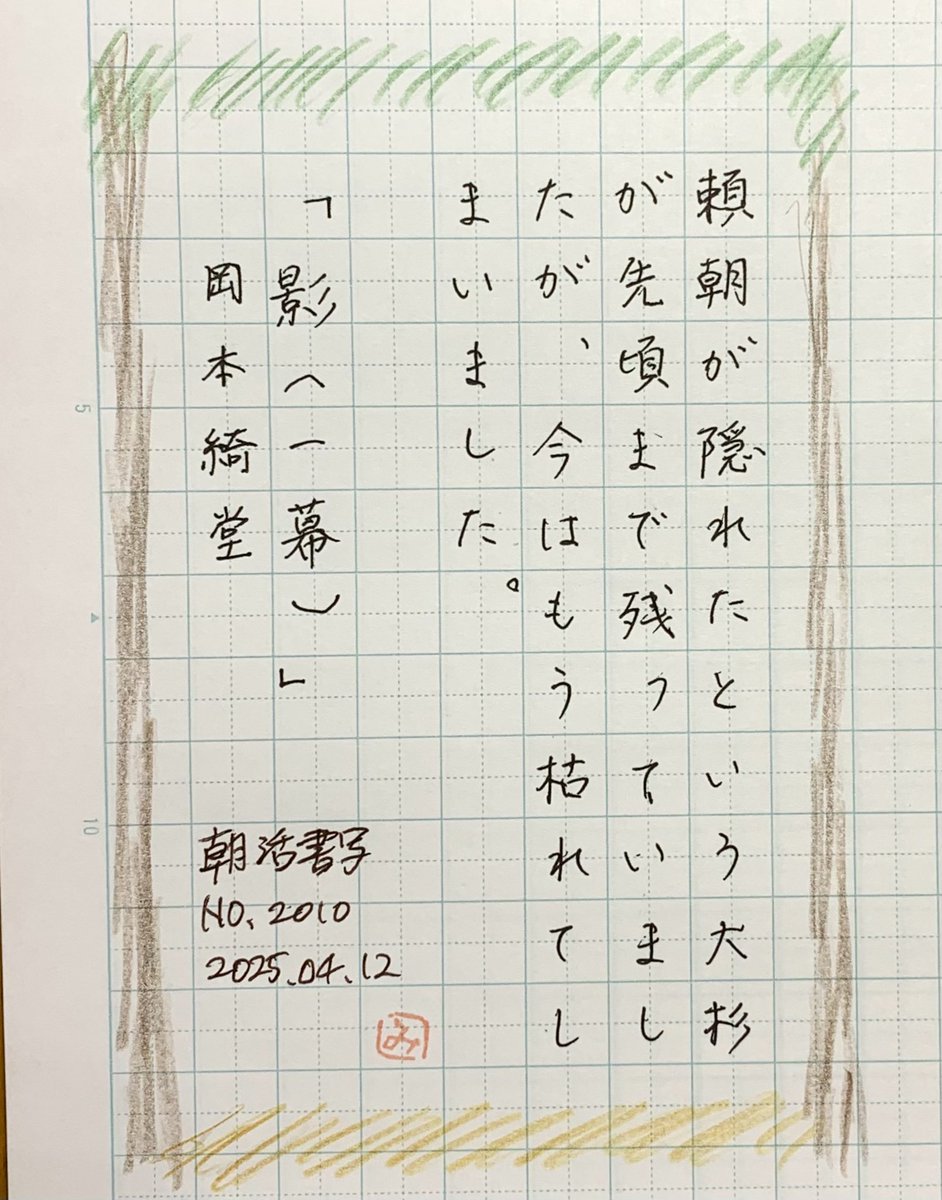 頼朝が隠れたという大杉
が先頃まで残っていまし
たが、今はもう枯れてし
まいました。
「影（一幕）」
岡本綺堂
朝活書写
NO.2010
2025.04.12
み
5
10